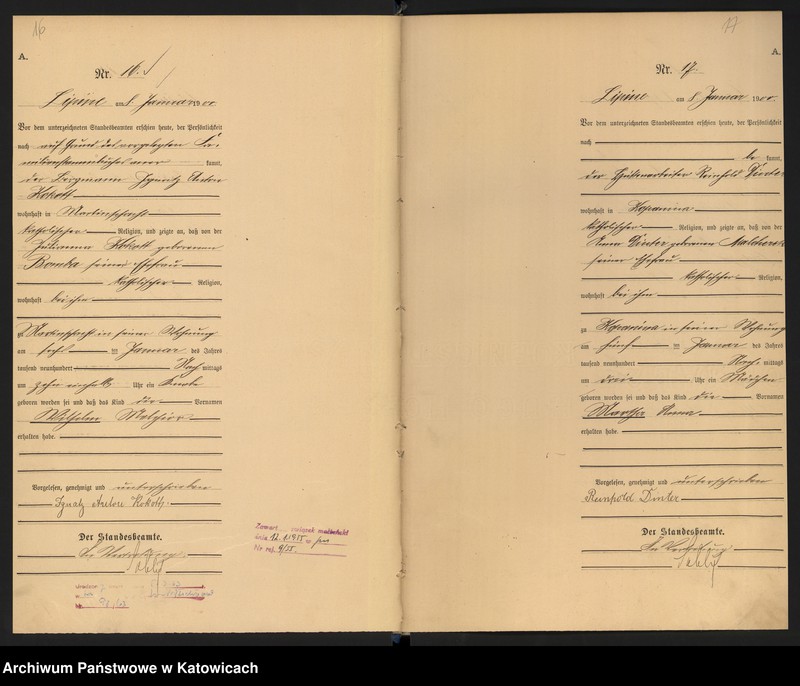 16
A.
Nr. 16.
Lipine am 8. Januar 1900.
Vor dem unterzeichneten Standesbeamten erschien heute, der Persönlichkeit
nach auf Grund des vorgelegten Fa-
milienstammbuches aner kannt,
der Bergmann Ignatz Anton
Kokott
wohnhaft in Martinschacht
katholischer Religion, und zeigte an, daß von der
Julianna Kokott geborenen
seiner Ehefrau
katholischer Religion,
wohnhaft bei ihm
zu Martinschacht in seiner Wohnung
am sechs ten Januar des Jahres
tausend neunhundert Nach mittags
um zehn einhalb Uhr ein Knabe
geboren worden sei und daß das Kind die Vornamen
Wilhelm Melchior
erhalten habe.
Vorgelesen, genehmigt und unterschrieben
Ignatz Anton Kokott.
Der Standesbeamte.
In Vertretung.
Zawarł związek małżeński
dnia 12.1.1925
Nr rej. 9/25.
17
A.
Nr. 17.
Lipine am 8. Januar 1900.
Vor dem unterzeichneten Standesbeamten erschien heute, der Persönlichkeit
nach
be kannt,
der Hüttenarbeiter Reinhold Dinter
wohnhaft in Kopanina
katholischer Religion, und zeigte an, daß von der
Anna Dinter geborenen
seiner Ehefrau
katholischer Religion,
wohnhaft bei ihm
zu Kopanina in seiner Wohnung
am fünf ten Januar des Jahres
tausend neunhundert Nach mittags
um drei Uhr ein Mädchen
geboren worden sei und daß das Kind die Vornamen
Martha Anna
erhalten habe.
Vorgelesen, genehmigt und unterschrieben
Reinhold Dinter
Der Standesbeamte.
In Vertretung.
Archiwum Państwowe w Katowicach